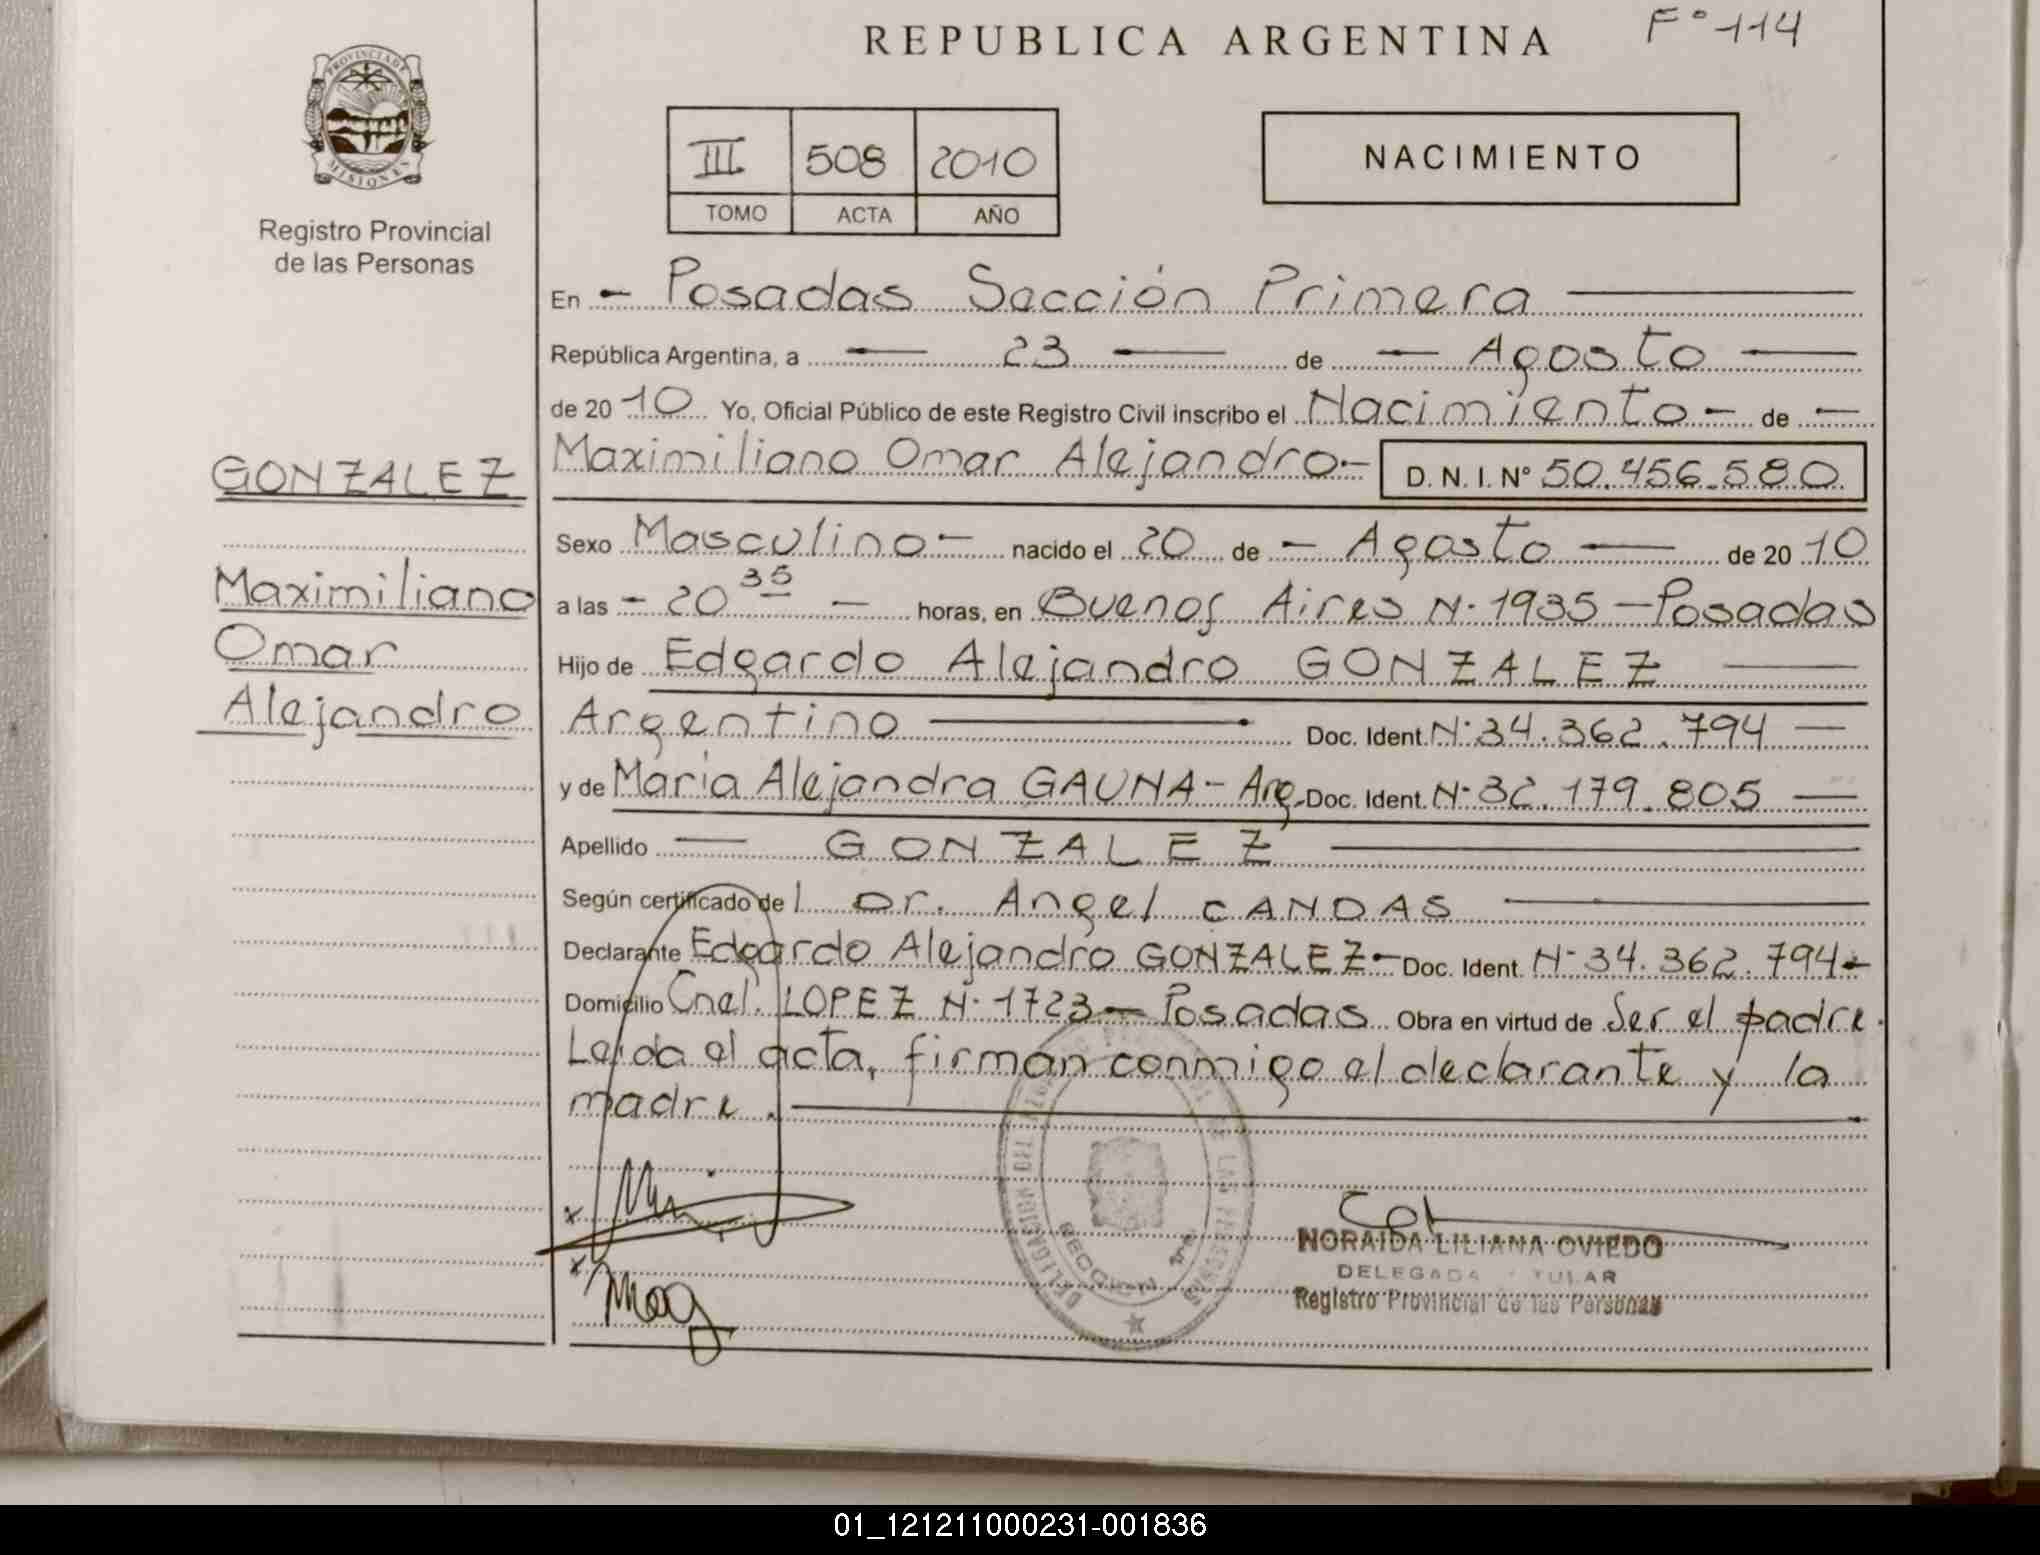 REPUBLICA ARGENTINA
Fº 114
PROVINCIA DE MISIONES
Registro Provincial
de las Personas
III 508 2010
TOMO ACTA AÑO
NACIMIENTO
En - Posadas Sección Primera
República Argentina, a 23 de - Agosto
de 2010 Yo, Oficial Público de este Registro Civil inscribo el Nacimiento - de -
Maximiliano Omar Alejandro.- D. N. I. Nº 50.456.580
GONZALEZ
Maximiliano
Omar
Alejandro
Sexo Masculino - nacido el 20 de - Agosto de 2010
a las - 20 35 - horas, en Buenos Aires Nº 1935 - Posadas
Hijo de Edgardo Alejandro GONZALEZ
Argentino Doc. Ident. Nº 34.362.794 -
y de Maria Alejandra GAUNA - Arg. Doc. Ident. Nº 32.179.805 -
Apellido GONZALEZ
Según certificado del Dr. Angel CANDAS
Declarante Edgardo Alejandro GONZALEZ - Doc. Ident. Nº 34.362.794 -
Domicilio Cnel. LOPEZ Nº 1723 - Posadas Obra en virtud de Ser el padre.
Leida el acta, firman conmigo el declarante y la
madre.
x
x
SECCION 1ra
NORAIDA LILIANA OVIEDO
DELEGADA TITULAR
Registro Provincial de las Personas
01_121211000231-001836